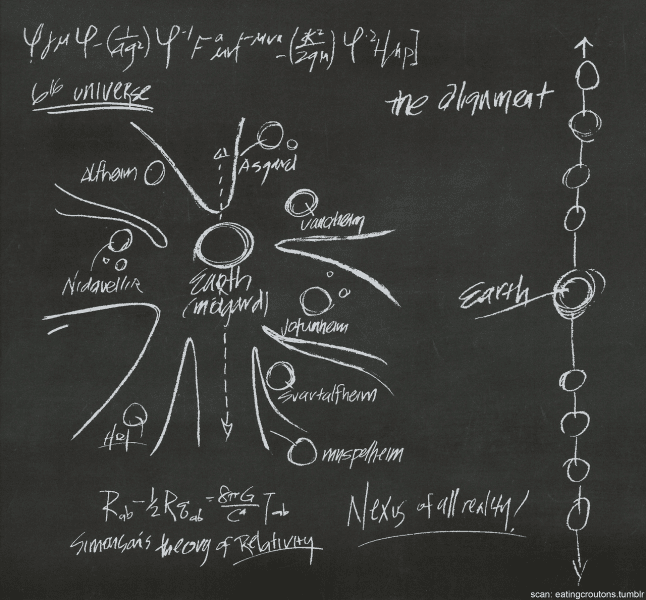 616 universe
the alignment
Alfheim
Asgard
Vanaheim
Nidavellir
Earth
(midgard)
Earth
Jotunheim
Svartalfheim
Hel
muspelheim
R_ab - 1/2 R g_ab = 8πG/C⁴ T_ab
Simonson's theory of Relativity
Nexus of all reality!
scan: eatingcroutons.tumblr